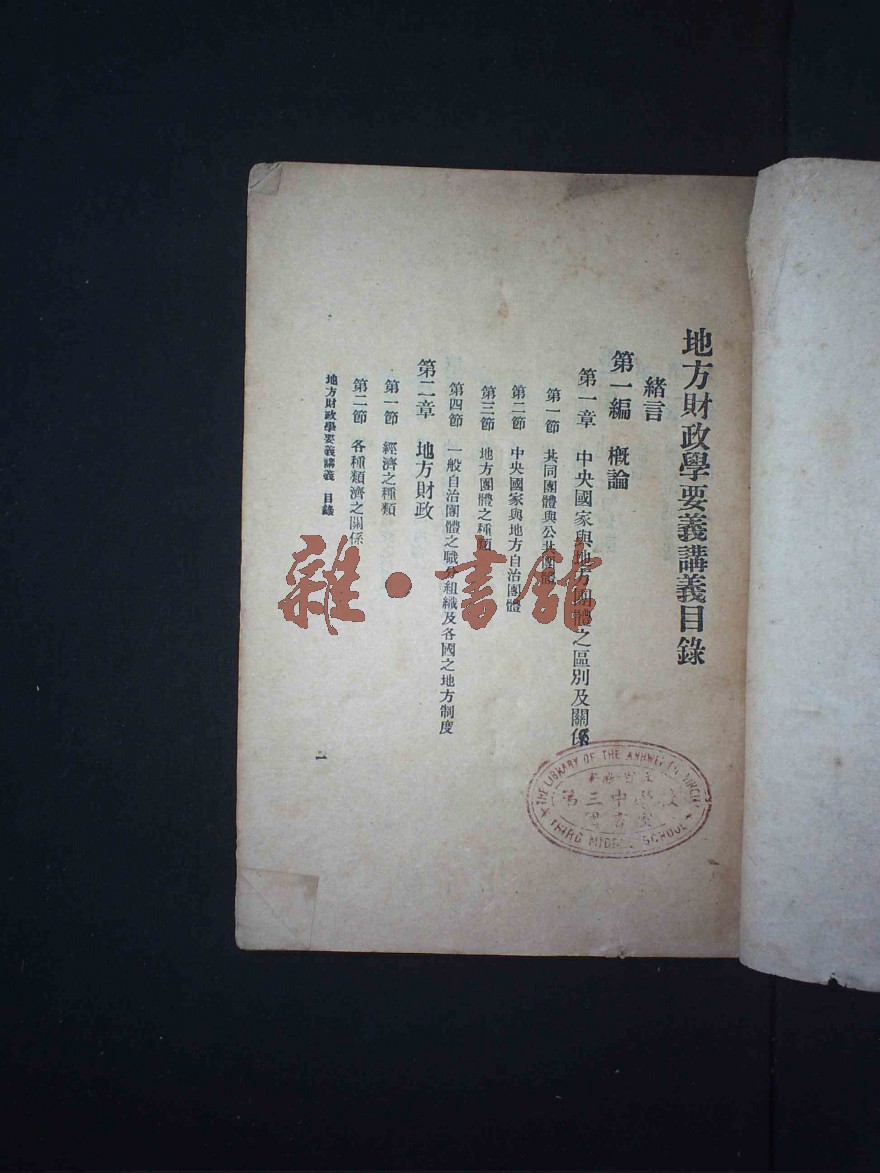 地方財政學要義講義目錄
緒言
第一編 概論
第一章 中央國家與地方團體之區別及關係
第一節 共同團體與公共團體
第二節 中央國家與地方自治團體
第三節 地方團體之種類
第四節 一般自治團體之職分組織及各國之地方制度
第二章 地方財政
第一節 經濟之種類
第二節 各種類濟之關係
地方財政學要義講義 目錄
一
雜·書館
THE LIBRARY OF THE ANHWEI
第三中學校
圖書室
THIRD MIDDLE SCHOOL